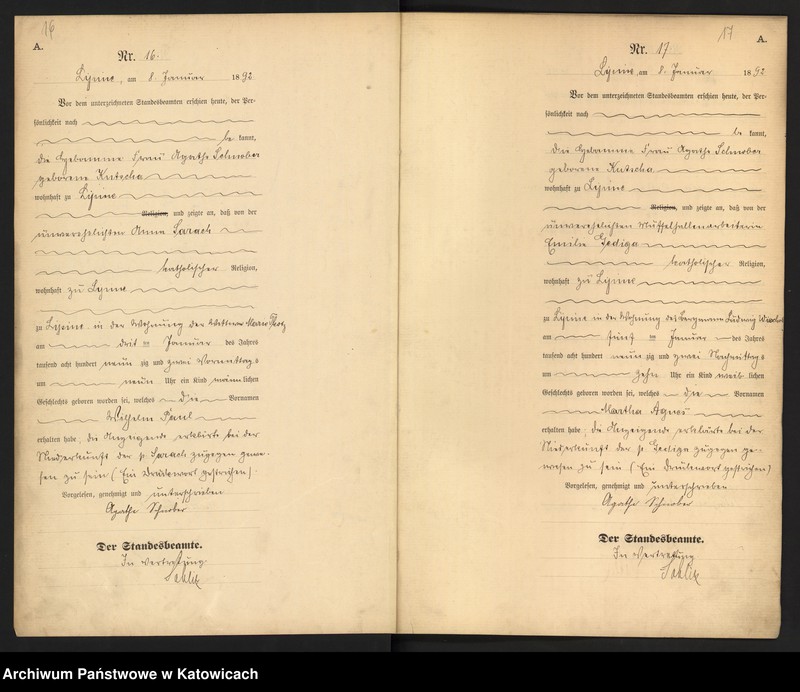 16
A.
Nr. 16.
Lipine, am 8. Januar 1892.
Vor dem unterzeichneten Standesbeamten erschien heute, der Per-
sönlichkeit nach
be kannt,
die Hebamme Frau Agathe Schnober
geborene Kutscha
wohnhaft zu Lipine
Religion, und zeigte an, daß von der
unverehelichten Anna Sarach
katholischer Religion,
wohnhaft zu Lipine
zu Lipine in der Wohnung der Wittwe Marie
am drei ten Januar des Jahres
tausend acht hundert neun zig und zwei Vormittags
um neun Uhr ein Kind männ lichen
Geschlechts geboren worden sei, welches die Vornamen
Wilhelm Paul
erhalten habe; die Anzeigende erklärte bei der
Niederkunft der p. Sarach zugegen gewe-
sen zu sein (Ein Druckwort gestrichen).
Vorgelesen, genehmigt und unterschrieben
Agathe Schnober
Der Standesbeamte.
In Vertretung.
17
A.
Nr. 17
Lipine, am 8. Januar 1892
Vor dem unterzeichneten Standesbeamten erschien heute, der Per-
sönlichkeit nach
be kannt,
die Hebamme Frau Agathe Schnober
geborene Kutscha
wohnhaft zu Lipine
Religion, und zeigte an, daß von der
unverehelichten Muffelhallenarbeiterin
Emilie Gediga
katholischer Religion,
wohnhaft zu Lipine
zu Lipine in der Wohnung des Bergmann Ludwig
am fünf ten Januar des Jahres
tausend acht hundert neun zig und zwei Nachmittags
um zehn Uhr ein Kind weib lichen
Geschlechts geboren worden sei, welches die Vornamen
Martha Agnes
erhalten habe; die Anzeigende erklärte bei der
Niederkunft der p. Gediga zugegen ge-
wesen zu sein (Ein Druckwort gestrichen)
Vorgelesen, genehmigt und unterschrieben
Agathe Schnober
Der Standesbeamte.
In Vertretung
Archiwum Państwowe w Katowicach